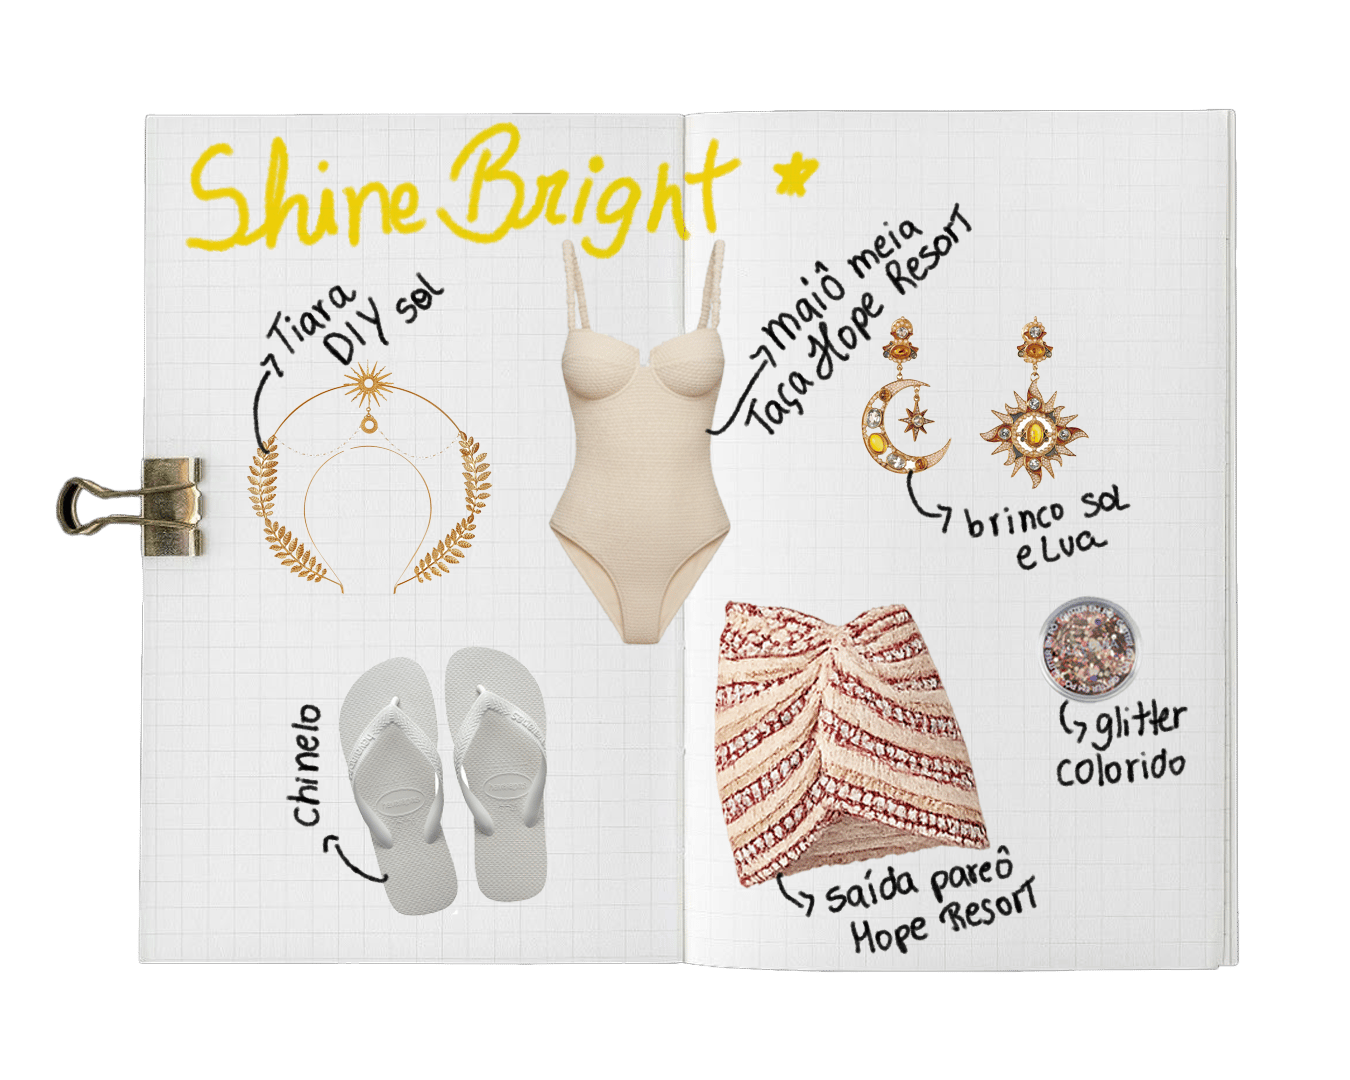 Shine Bright
Tiara
DIY sol
maiô meia
Taça Hope Resort
brinco sol
e Lua
chinelo
glitter
colorido
saída pareô
Hope Resort